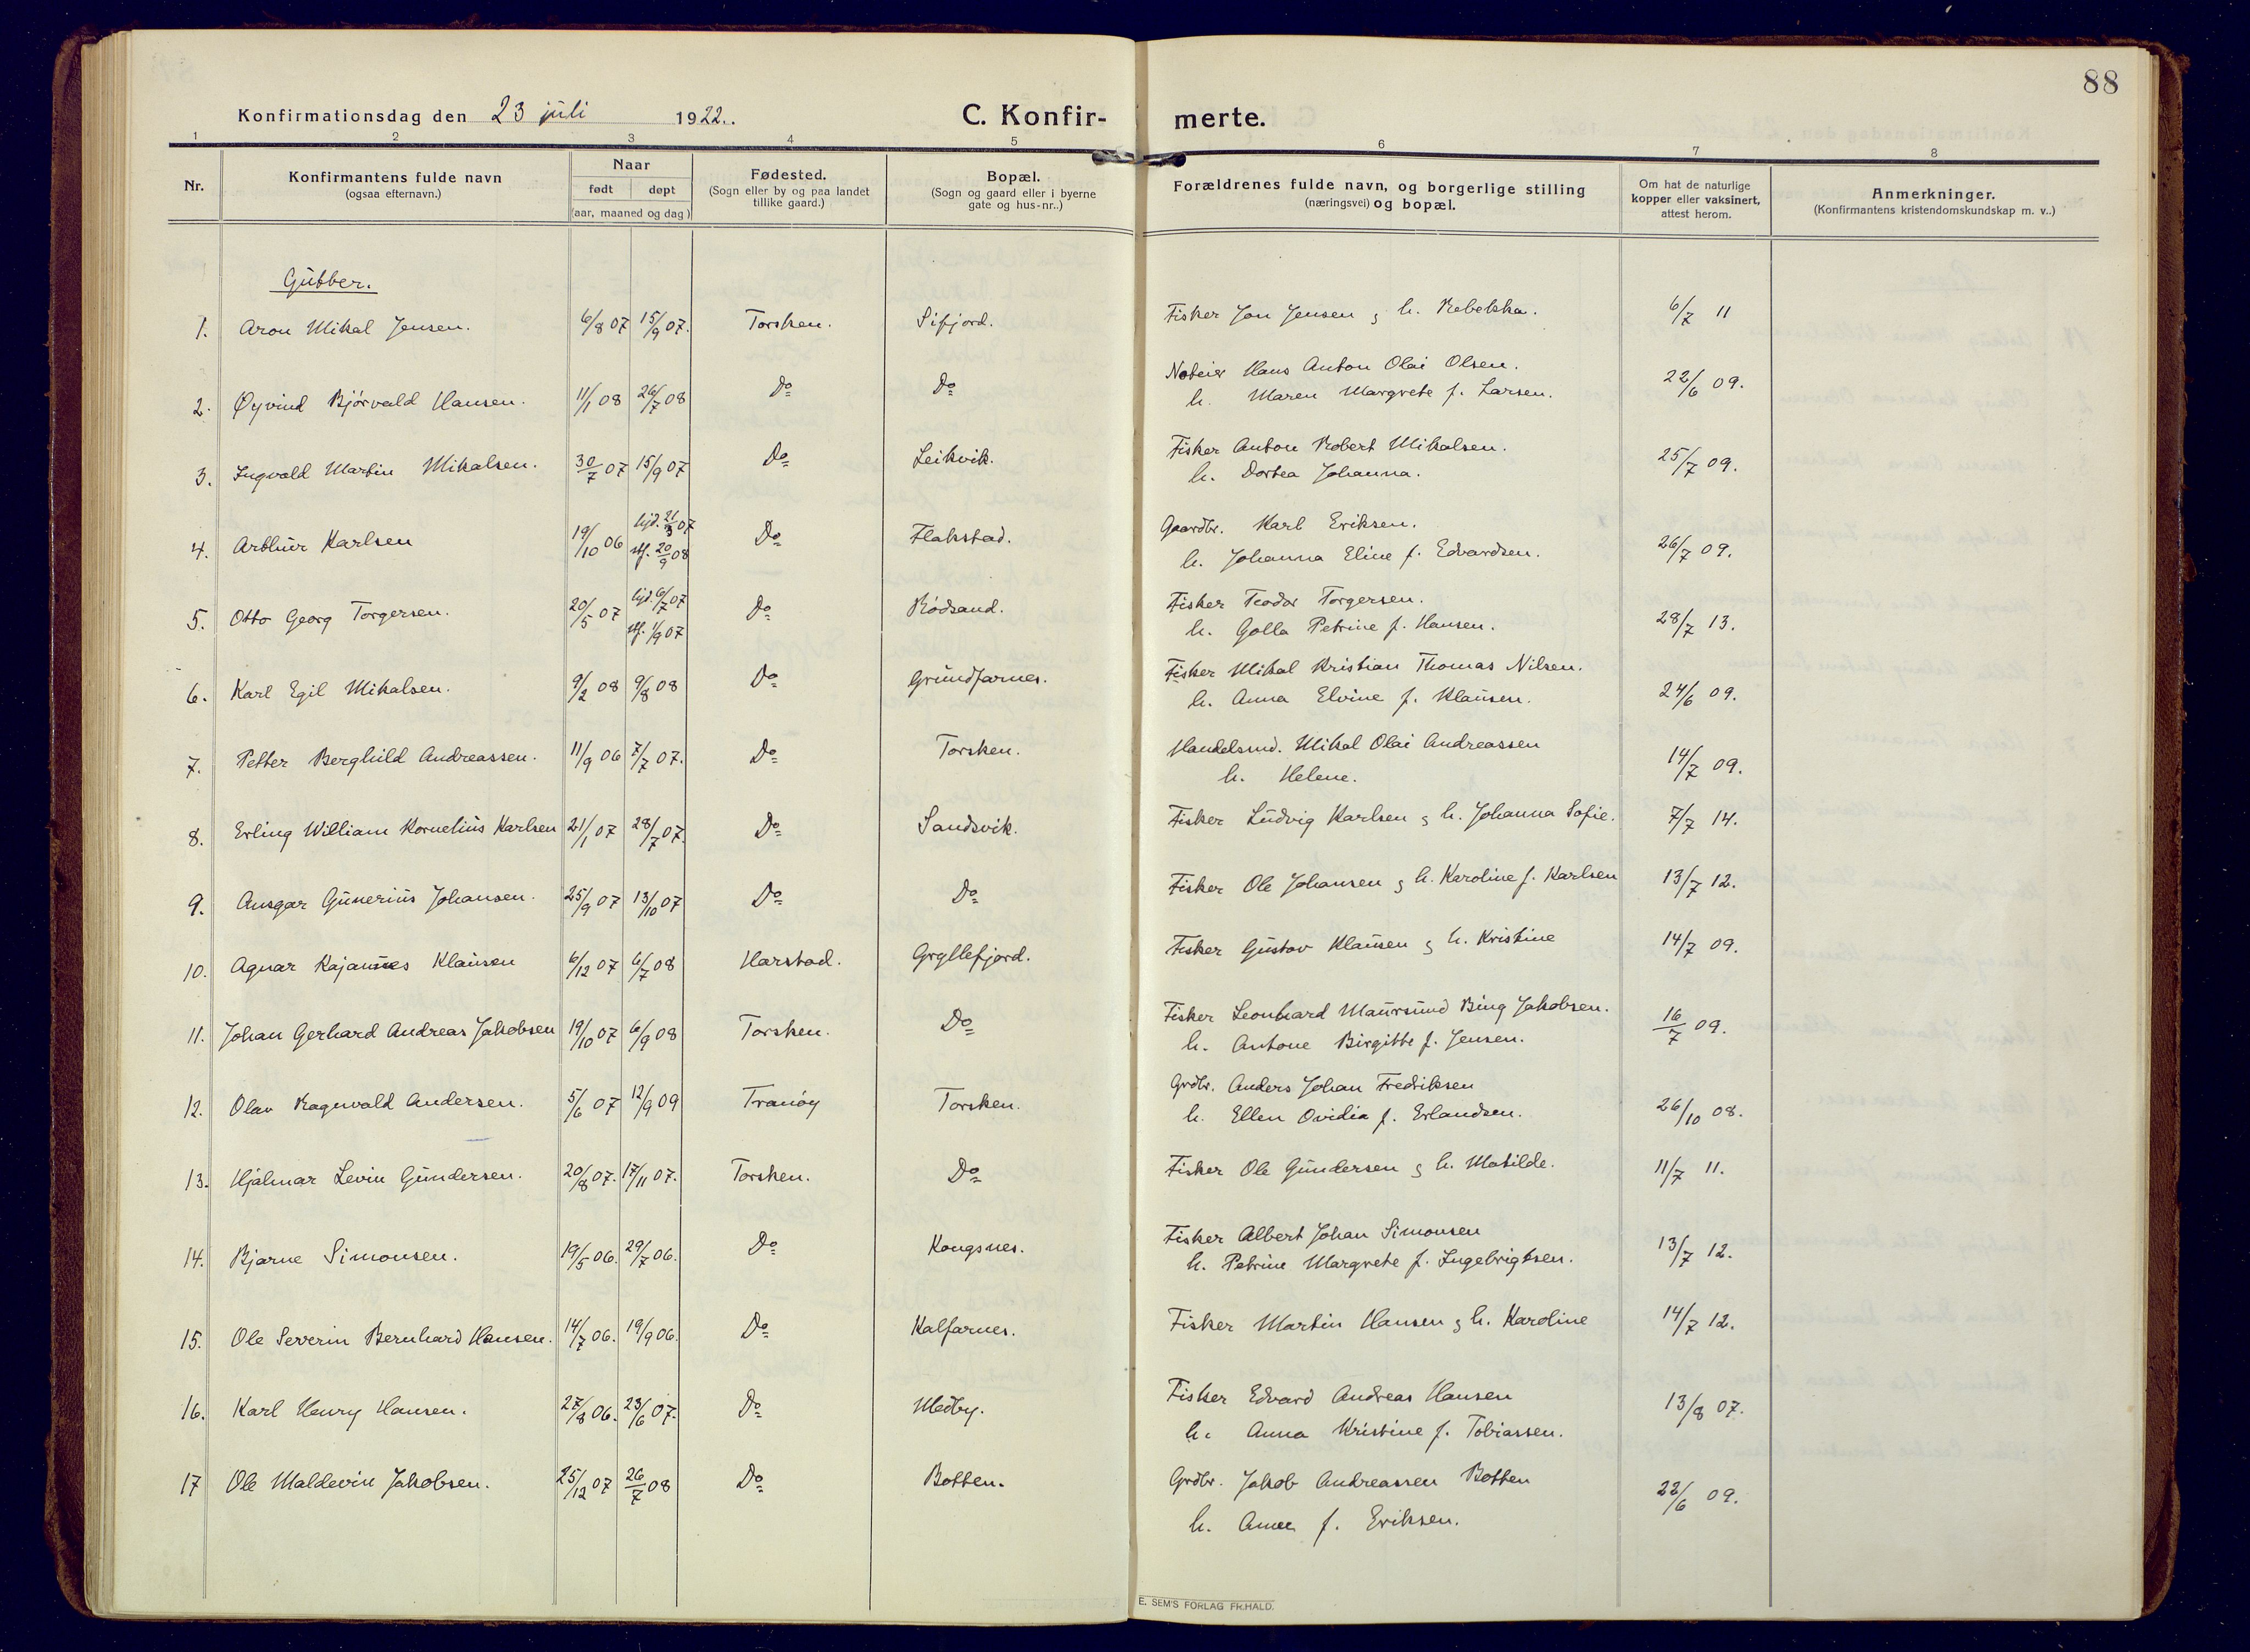 88
Konfirmationsdag den 23 juli 1922.
C. Konfirmerte.
1 2 3 4 5 6 7 8
Nr. Konfirmantens fulde navn (ogsaa efternavn.) Naar født døpt (aar, maaned og dag) Fødested. (Sogn eller by og paa landet tillike gaard.) Bopæl. (Sogn og gaard eller i byerne gate og hus-nr..) Forældrenes fulde navn, og borgerlige stilling (næringsvei) og bopæl. Om hat de naturlige kopper eller vaksinert, attest herom. Anmerkninger. (Konfirmantens kristendomskundskap m. v..)
Gutter.
1. Aron Mikal Jensen. 6/8 07 15/9 07. Torsken. Sifjord. Fisker Jon Jensen & h. Rebekka. 6/7 11
2. Øyvind Bjørvald Hansen. 11/1 08 26/7 08 Do Do Noteier Hans Anton Olai Olsen. 22/6 09.
h. Maren Margrete f. Larsen.
3. Ingvald Martin Mikalsen. 30/7 07 15/9 07 Do Leikvik. Fisker Anton Robert Mikalsen. 25/7 09.
h. Dortea Johanna.
4. Arthur Karlsen 19/10 06 hjd. 21/3 07 stf. 20/9 08 Do Flakstad. Gaardbr. Karl Eriksen. 26/7 09.
h. Johanna Eline f. Edvardsen.
5. Otto Georg Torgersen. 20/5 07 hjd. 6/7 07 stf. 1/9 07 Do Rödsand. Fisker Teodor Torgersen. 28/7 13.
h. Golla Petrine f. Hansen.
6. Karl Egil Mikalsen. 9/2 08 9/8 08 Do Grundfarnes. Fisker Mikal Kristian Thomas Nilsen. 24/6 09.
h. Anna Elvine f. Klausen.
7. Petter Berghild Andreassen. 11/9 06 7/7 07. Do Torsken. Handelsmd. Mikal Olai Andreassen 14/7 09.
h. Helene.
8. Erling William Kornelius Karlsen 21/1 07 28/7 07. Do Sandsvik. Fisker Ludvig Karlsen & h. Johanna Sofie. 7/7 14.
9. Ansgar Gunerius Johansen. 25/9 07 13/10 07 Do Do Fisker Ole Johansen & h. Karoline f. Karlsen 13/7 12.
10. Agnar Klausen 6/12 07 6/7 08 Harstad. Gryllefjord. Fisker Gustav Klausen & h. Kristine 14/7 09.
11. Johan Gerhard Andreas Jakobsen 19/10 07 6/9 08 Torsken. Do Fisker Leonhard Maursund Bing Jakobsen. 16/7 09.
h. Antone Birgitte f. Jensen.
12. Olav Ragnvald Andersen. 5/6 07 12/9 09 Tranöy Torsken. Grdbr. Anders Johan Fredriksen 26/10 08.
h. Ellen Ovidia f. Erlandsen.
13. Hjalmar Levin Gundersen. 20/8 07. 17/11 07. Torsken. Do Fisker Ole Gundersen & h. Matilde. 11/7 11.
14. Bjarne Simonsen. 19/5 06. 29/7 06. Do Kongsnes. Fisker Albert Johan Simonsen 13/7 12.
h. Petrine Margrete f. Ingebrigtsen.
15. Ole Severin Bernhard Hansen. 14/7 06. 19/9 06. Do Kalfarnes. Fisker Martin Hansen & h. Karoline 14/7 12.
16. Karl Henry Hansen. 27/8 06. 23/6 07. Do Medby. Fisker Edvard Andreas Hansen 13/8 07.
h. Anna Kristine f. Tobiassen.
17 Ole Maldevin Jakobsen. 25/12 07 26/7 08 Do Botten. Grdbr. Jakob Andreassen Botten 22/6 09.
h. f. Eriksen.
E. SEM'S FORLAG FR.HALD.